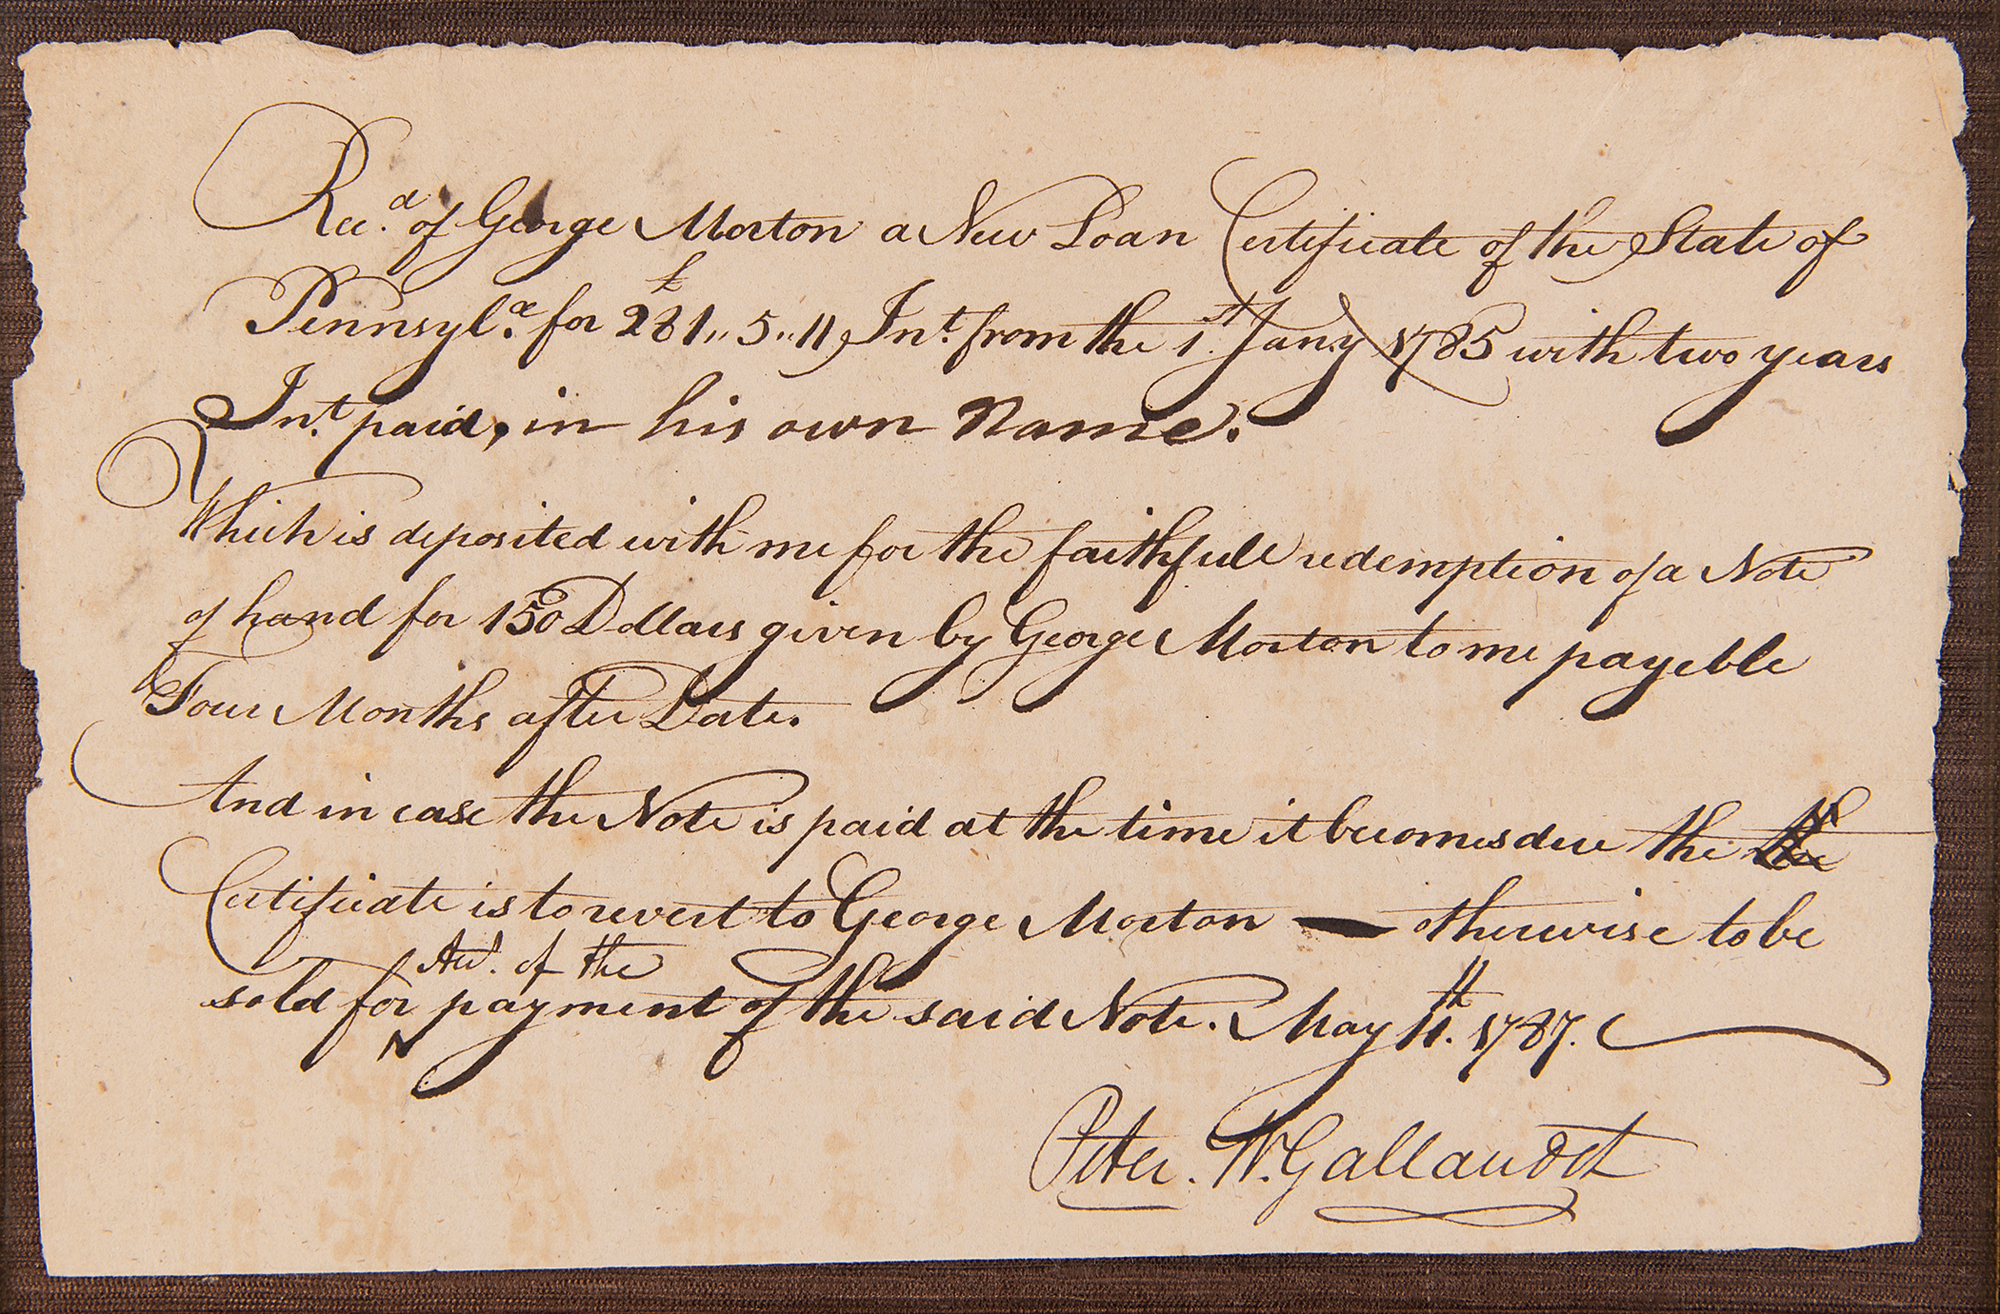 Rec.d of George Morton a New Loan Certificate of the State of
Pennsyl.a for £281,,5,,11 Int. from the 1st Jany 1785 with two years
Int. paid, in his own Name.
Which is deposited with me for the faithfull redemption of a Note
of hand for 150 Dollars given by George Morton to me payeble
Four Months after Date.
And in case the Note is paid at the time it becomes due the the
Certificate is to revert to George Morton — otherwise to be
of the
sold for payment of the said Note. May 11th. 1787.
Peter. W. Gallaudet